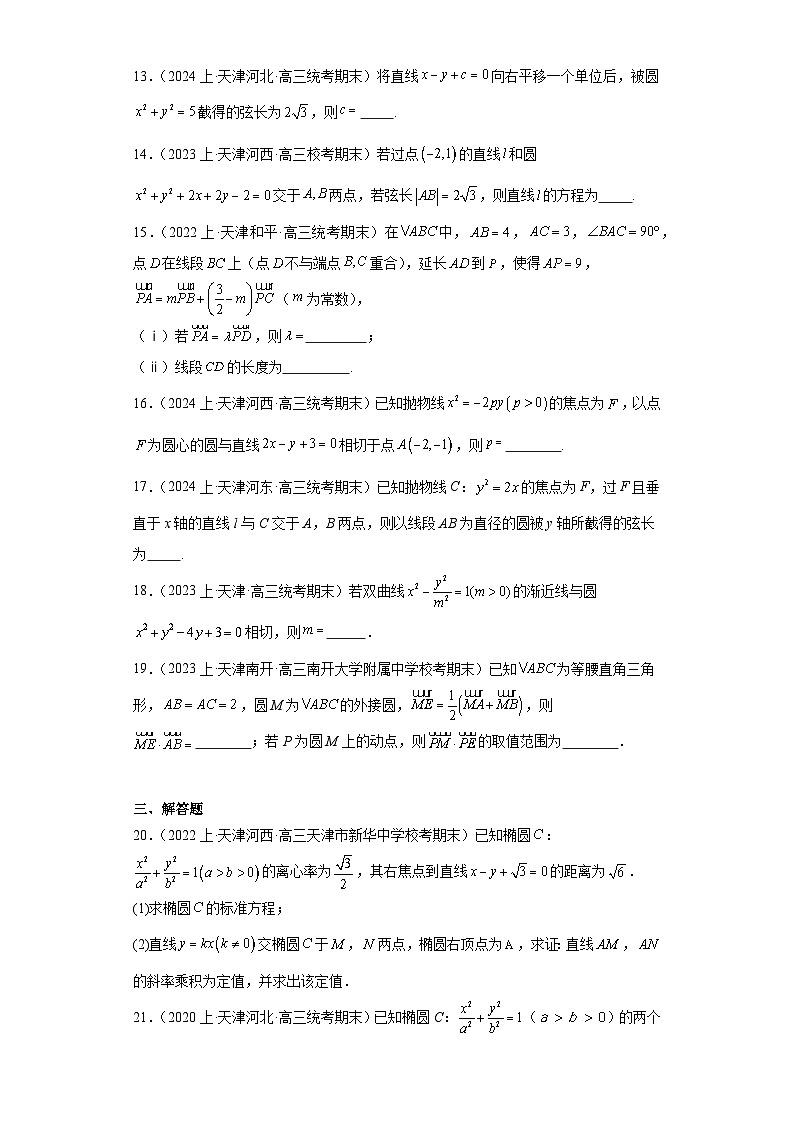 13.(2024上·天津河北·高三统考期末)将直线x−y+c=0向右平移一个单位后,被圆
x²+y²=5截得的弦长为2√3,则c=_____.
14.(2023上·天津河西·高三校考期末)若过点(−2,1)的直线l和圆
x²+y²+2x+2y−2=0交于A,B两点,若弦长|AB|=2√3,则直线l的方程为_____.
15.(2022上·天津和平·高三统考期末)在VABC中,AB=4,AC=3,∠BAC=90°,
点D在线段BC上(点D不与端点B,C重合),延长AD到P,使得AP=9,
PA=mPB+(3/2−m)PC(m为常数),
(ⅰ)若PA=λPD,则λ=_________;
(ⅱ)线段CD的长度为__________.
16.(2024上·天津河西·高三统考期末)已知抛物线x²=−2py(p>0)的焦点为F,以点
F为圆心的圆与直线2x−y+3=0相切于点A(−2,−1),则p=________.
17.(2024上·天津河东·高三统考期末)已知抛物线C:y²=2x的焦点为F,过F且垂
直于x轴的直线l与C交于A,B两点,则以线段AB为直径的圆被y轴所截得的弦长
为_____.
18.(2023上·天津·高三统考期末)若双曲线x²−y²/m²=1(m>0)的渐近线与圆
x²+y²−4y+3=0相切,则m=______.
19.(2023上·天津南开·高三南开大学附属中学校考期末)已知VABC为等腰直角三角
形,AB=AC=2,圆M为VABC的外接圆,ME=1/2(MA+MB),则
ME·AB=________;若P为圆M上的动点,则PM·PE的取值范围为________.
三、解答题
20.(2022上·天津河西·高三天津市新华中学校考期末)已知椭圆C:
x²/a²+y²/b²=1(a>b>0)的离心率为√3/2,其右焦点到直线x−y+√3=0的距离为√6.
(1)求椭圆C的标准方程;
(2)直线y=kx(k≠0)交椭圆C于M,N两点,椭圆右顶点为A,求证:直线AM,AN
的斜率乘积为定值,并求出该定值.
21.(2020上·天津河北·高三统考期末)已知椭圆C:x²/a²+y²/b²=1(a>b>0)的两个